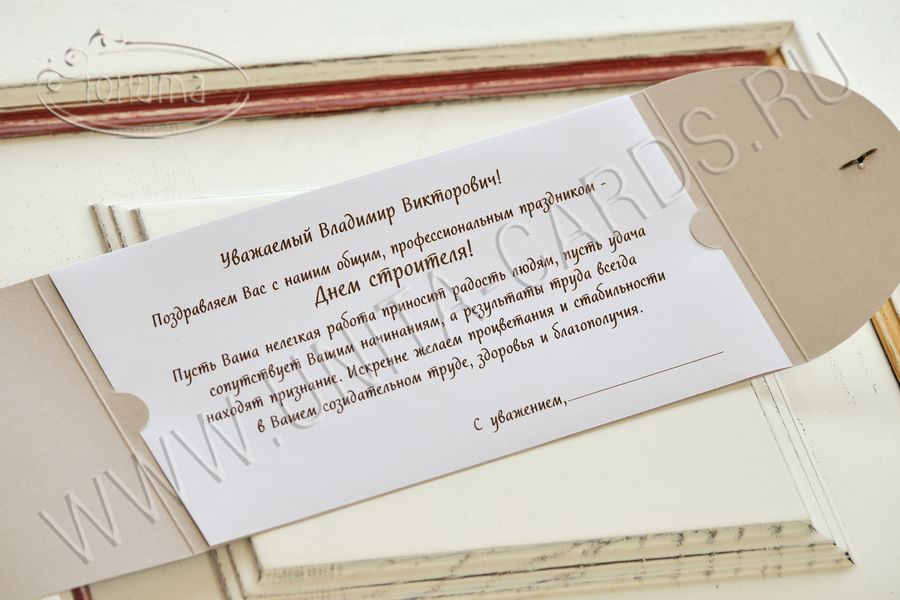 Юнита
WWW.UNITA-CARDS.RU
Уважаемый Владимир Викторович!
Поздравляем Вас с нашим общим, профессиональным праздником -
Днем строителя!
Пусть Ваша нелегкая работа приносит радость людям, пусть удача
сопутствует Вашим начинаниям, а результаты труда всегда
находят признание. Искренне желаем процветания и стабильности
в Вашем созидательном труде, здоровья и благополучия.
С уважением,